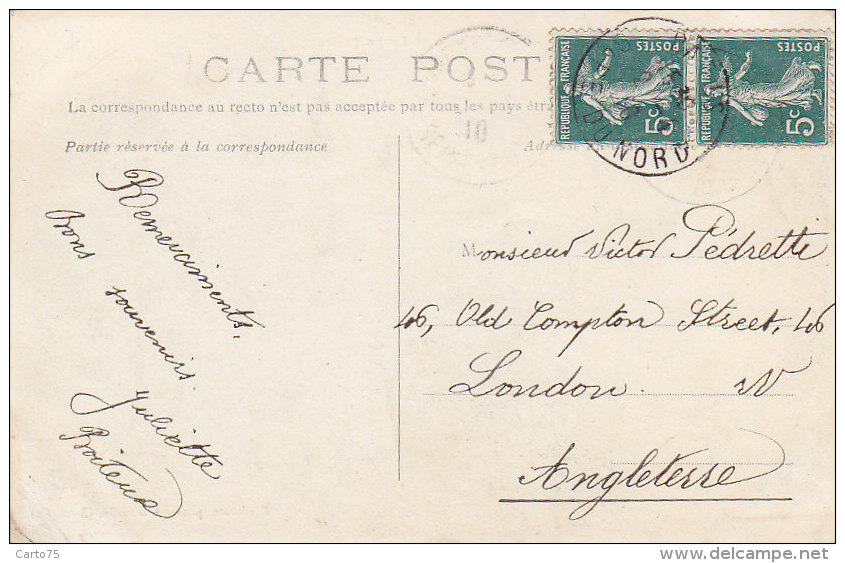 CARTE POST
La correspondance au recto n'est pas acceptée par tous les pays étra
Partie réservée à la correspondance
Adresse
RÉPUBLIQUE FRANÇAISE
POSTES
5c
RÉPUBLIQUE FRANÇAISE
POSTES
5c
DU NORD
10
Remerciments.
Bons souvenirs.
Juliette
Boiteux
Monsieur Victor Pédretti
46, Old Compton Street, 46
London. W
Angleterre
Carto75
www.delcampe.net